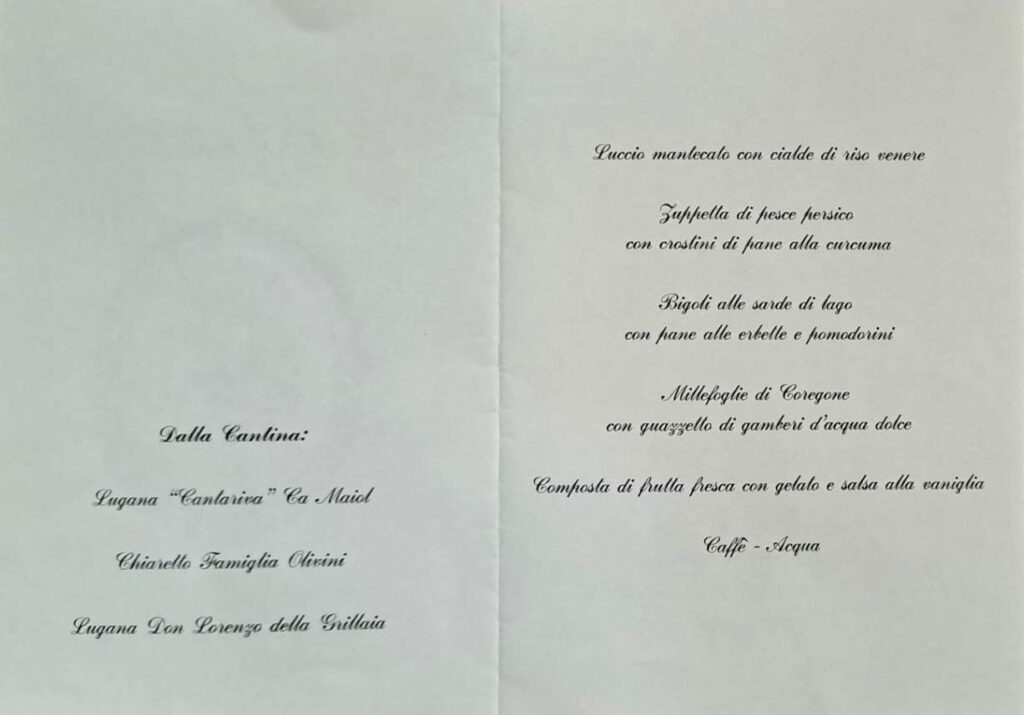 Dalla Cantina:
Lugana "Cantariva" Ca Maiol
Chiaretto Famiglia Olivini
Lugana Don Lorenzo della Grillaia
Luccio mantecato con cialde di riso venere
Zuppetta di pesce persico
con crostini di pane alla curcuma
Bigoli alle sarde di lago
con pane alle erbette e pomodorini
Millefoglie di Coregone
con guazzetto di gamberi d'acqua dolce
Composta di frutta fresca con gelato e salsa alla vaniglia
Caffè - Acqua